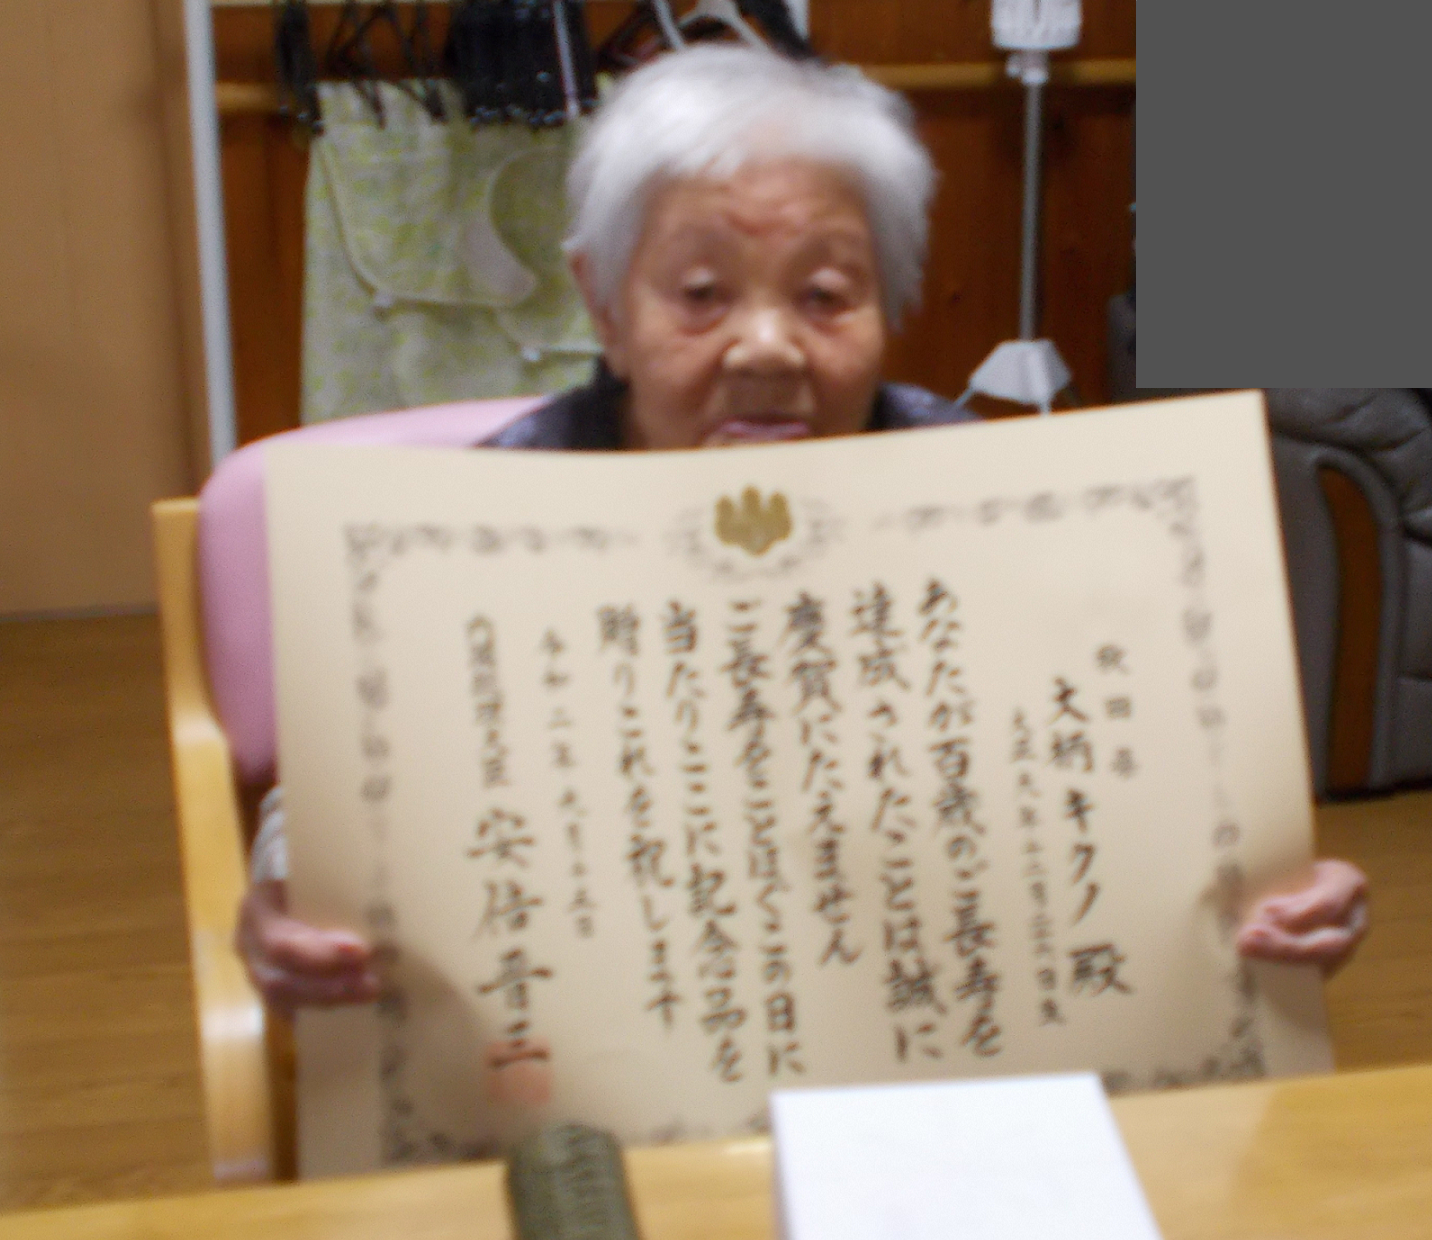 秋田県
大柄キクノ殿
大正九年十二月三十日生
あなたが百歳のご長寿を
達成されたことは誠に
慶賀にたえません
ご長寿をことほぐこの日に
当たりここに記念品を
贈りこれを祝します
令和二年九月十五日
内閣総理大臣 安倍晋三